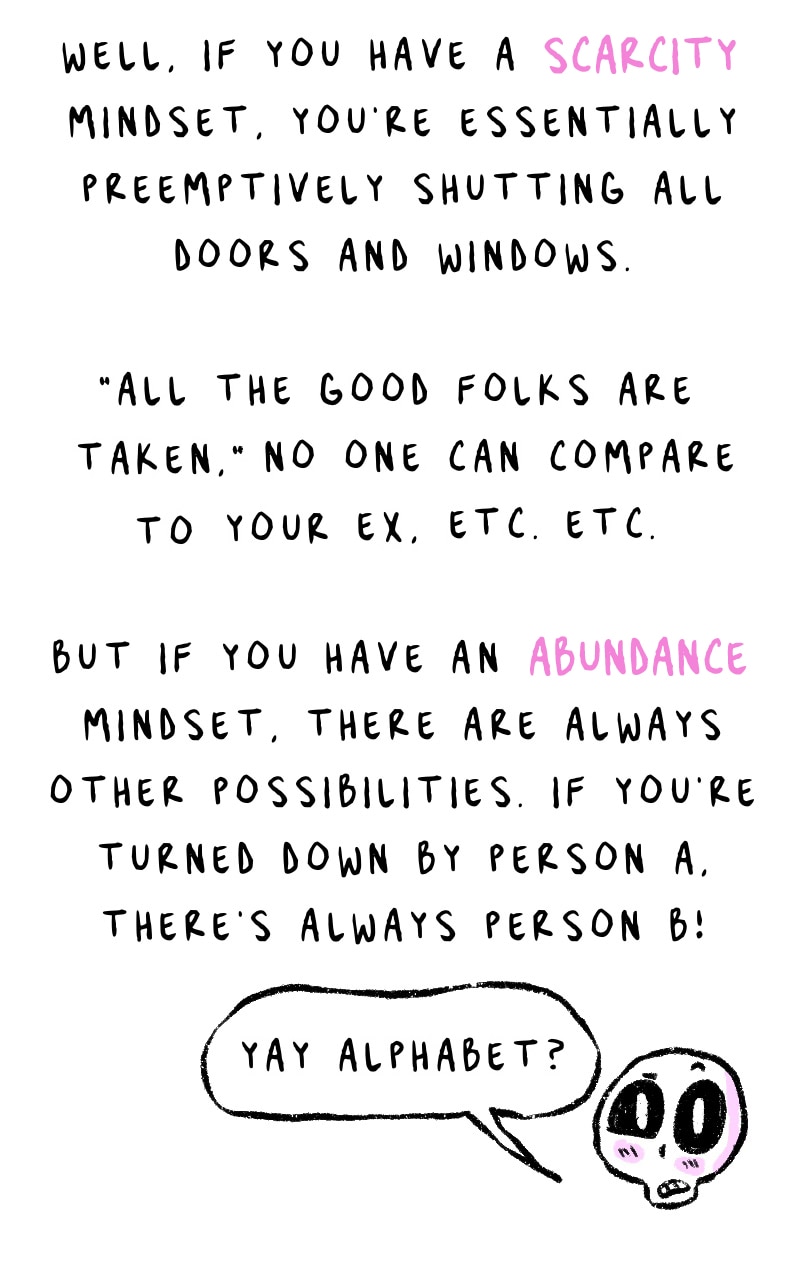 WELL, IF YOU HAVE A SCARCITY
MINDSET, YOU'RE ESSENTIALLY
PREEMPTIVELY SHUTTING ALL
DOORS AND WINDOWS.
"ALL THE GOOD FOLKS ARE
TAKEN," NO ONE CAN COMPARE
TO YOUR EX, ETC. ETC.
BUT IF YOU HAVE AN ABUNDANCE
MINDSET, THERE ARE ALWAYS
OTHER POSSIBILITIES. IF YOU'RE
TURNED DOWN BY PERSON A,
THERE'S ALWAYS PERSON B!
YAY ALPHABET?